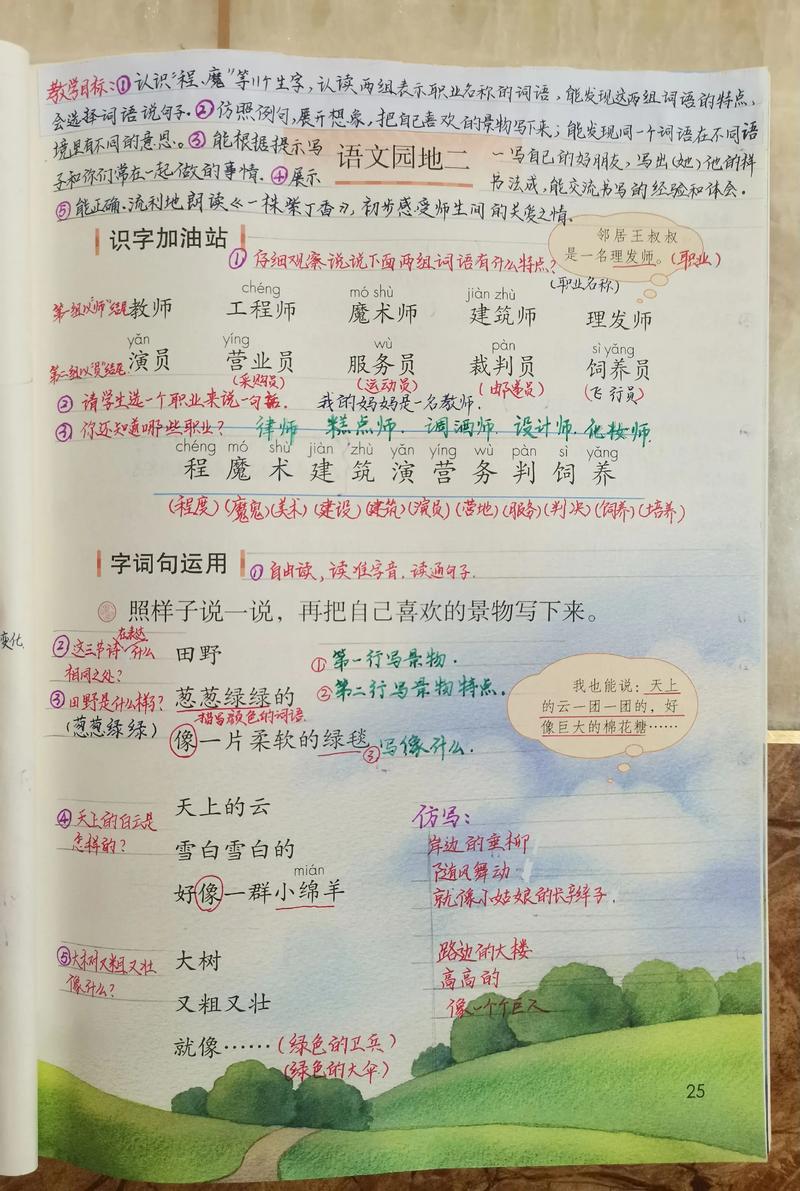 教学目标:①认识“程、魔”等11个生字,认读两组表示职业名称的词语,能发现这两组词语的特点,
会选择词语说句子。②仿照例句,展开想象,把自己喜欢的景物写下来;能发现同一个词语在不同语
境里有不同的意思。③能根据提示写
一写自己的好朋友,写出(她)他的样
子和你们常在一起做的事情。④展示
书法成,能交流书写的经验和体会。
语文园地二
⑤能正确、流利地朗读《一株紫丁香》,初步感受师生间的关爱之情。
识字加油站
邻居王叔叔
是一名理发师。(职业)
①仔细观察说说下面两组词语有什么特点?
(职业名称)
chéng mó shù jiàn zhù
第一组以“师”结尾 教师 工程师 魔术师 建筑师 理发师
yǎn yíng wù pàn sì yǎng
第二组以“员”结尾 演员 营业员 服务员 裁判员 饲养员
(采购员) (运动员) (邮递员) (飞行员)
②请学生选一个职业来说一句话. 我的妈妈是一名教师.
③你还知道哪些职业? 律师 糕点师. 调酒师. 设计师. 化妆师.
chéng mó shù jiàn zhù yǎn yíng wù pàn sì yǎng
程 魔 术 建 筑 演 营 务 判 饲 养
(程度)(魔鬼)(美术)(建设)(建筑)(演员)(营地)(服务)(判决)(饲养)(培养)
字词句运用
①自由读,读准字音.读通句子.
照样子说一说,再把自己喜欢的景物写下来。
②这三节诗在表达什么
相同之处?
田野
①第一行写景物.
③田野是什么样?
(葱葱绿绿)
葱葱绿绿的
②第二行写景物特点.
描写颜色的词语
像一片柔软的绿毯
③写像什么.
我也能说:天上
的云一团一团的,好
像巨大的棉花糖……
变化
④天上的白云是
怎样的?
天上的云
雪白雪白的
mián
好像一群小绵羊
仿写:
岸边的垂柳
随风舞动
就像小姑娘的长辫子.
⑤大树又粗又壮
像什么?
大树
又粗又壮
就像……(绿色的卫兵)
(绿色的大伞)
路边的大楼
高高的
像一个个巨人
25